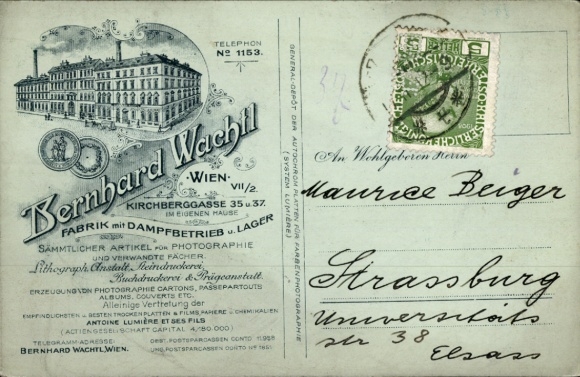 TELEPHON
No 1153.
Bernhard Wachtl
WIEN
VII/2.
KIRCHBERGGASSE 35 u. 37.
IM EIGENEN HAUSE
FABRIK mit DAMPFBETRIEB u. LAGER
SÄMMTLICHER ARTIKEL FÜR PHOTOGRAPHIE
UND VERWANDTE FÄCHER.
Lithograph. Anstalt, Steindruckerei,
Buchdruckerei & Prägeanstalt.
ERZEUGUNG VON PHOTOGRAPHIE CARTONS, PASSEPARTOUTS
ALBUMS, COUVERTS ETC.
Alleinige Vertretung der
EMPFINDLICHSTEN u. BESTEN TROCKEN PLATTEN & FILMS, PAPIERE u. CHEMIKALIEN
ANTOINE LUMIÈRE ET SES FILS
(ACTIENGESELLSCHAFT CAPITAL 4,180.000)
TELEGRAMM-ADRESSE:
BERNHARD WACHTL, WIEN.
OEST. POSTSPARCASSEN CONTO
UNG. POSTSPARCASSEN CONTO
GENERAL-DEPÔT DER AUTOCHROM-PLATTEN FÜR FARBENPHOTOGRAPHIE
(SYSTEM LUMIÈRE)
5
An Wohlgeboren Herrn
Maurice Beiger
Strassburg
Universitäts
str 38
Elsass